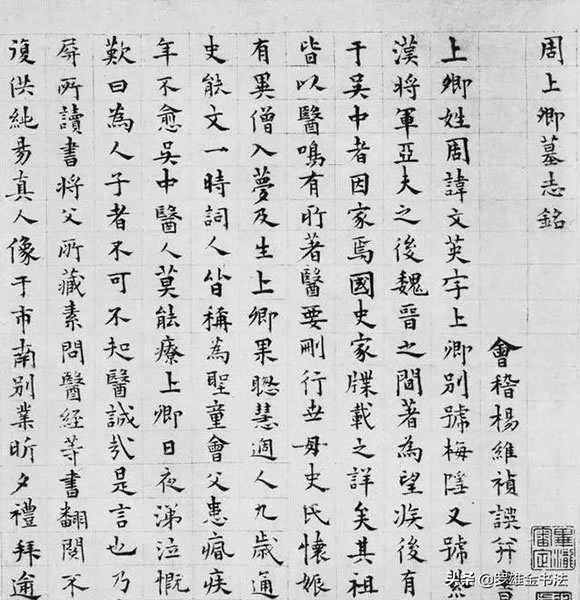 周上卿墓志銘
會稽楊維禎譔并書
上卿姓周諱文英字上卿別號梅隱又號紫
漢將軍亞夫之後魏晉之間著為望族後有
于吳中者因家焉國史家牒載之詳矣其祖
皆以醫鳴有所著醫要刪行世母史氏懷娠
有異僧入夢及生上卿果聰慧過人九歲通
史能文一時詞人皆稱為聖童會父患瘋疾
年不愈吳中醫人莫能療上卿日夜涕泣慨
歎曰為人子者不可不知醫誠哉是言也乃
屏所讀書將父所藏素問醫經等書翻閱不
復供純陽真人像于市南別業昕夕禮拜逾
头条@罗雄金书法